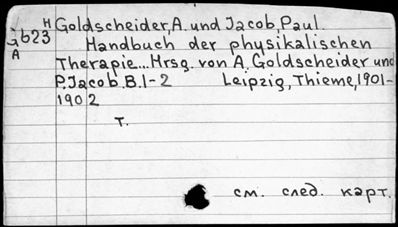 H Goldscheider, A. und Jacob, Paul.
G 623 Handbuch der physikalischen
A Therapie... Hrsg. von A. Goldscheider und
P. Jacob. B. 1-2 Leipzig, Thieme, 1901-
1902
T.
см. след. карт.